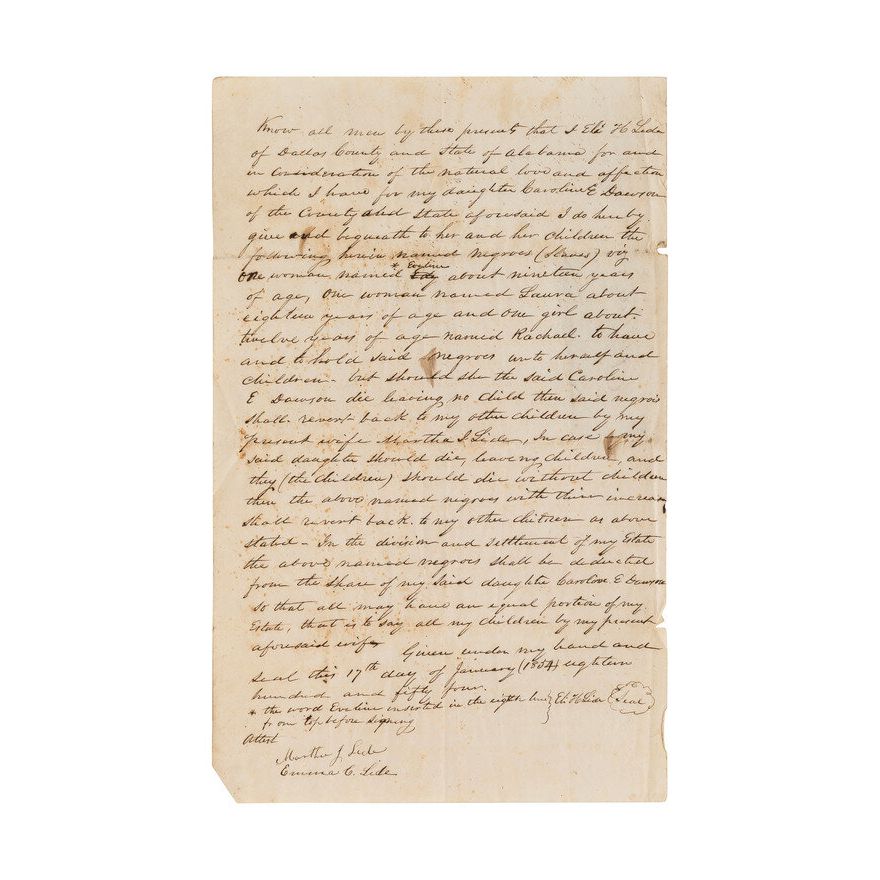 Know all men by these presents that I Eli H Lide
of Dallas County and State of Alabama for and
in Consideration of the natural love and affection
which I have for my daughter Caroline E Dawson
of the County and State aforesaid I do hereby
give and bequeath to her and her children the
following herein named negroes (Slaves) viz
One woman named * Eveline about nineteen years
of age, One woman named Laura about
eighteen years of age and one girl about
twelve years of age named Rachael. to have
and to hold said negroes unto herself and
children - but should she the said Caroline
E Dawson die leaving no child then said negroes
shall revert back to my other children by my
present wife Martha J Lide, In case my
said daughter should die, leaving children and
they (the children) should die without children
then the above named negroes with their increase
shall revert back. to my other children as above
stated - In the division and settlement of my Estate
the above named negroes shall be deducted
from the share of my said daughter Caroline E Dawson
so that all may have an equal portion of my
Estate, that is to say all my children by my present
aforesaid wife Given under my hand and
seal this 17th day of January (1854) eighteen
hundred and fifty four.
* the word Eveline inserted in the eighth line } Eli H Lide Seal
from top before signing
Attest
Martha J. Lide
Emma C. Lide